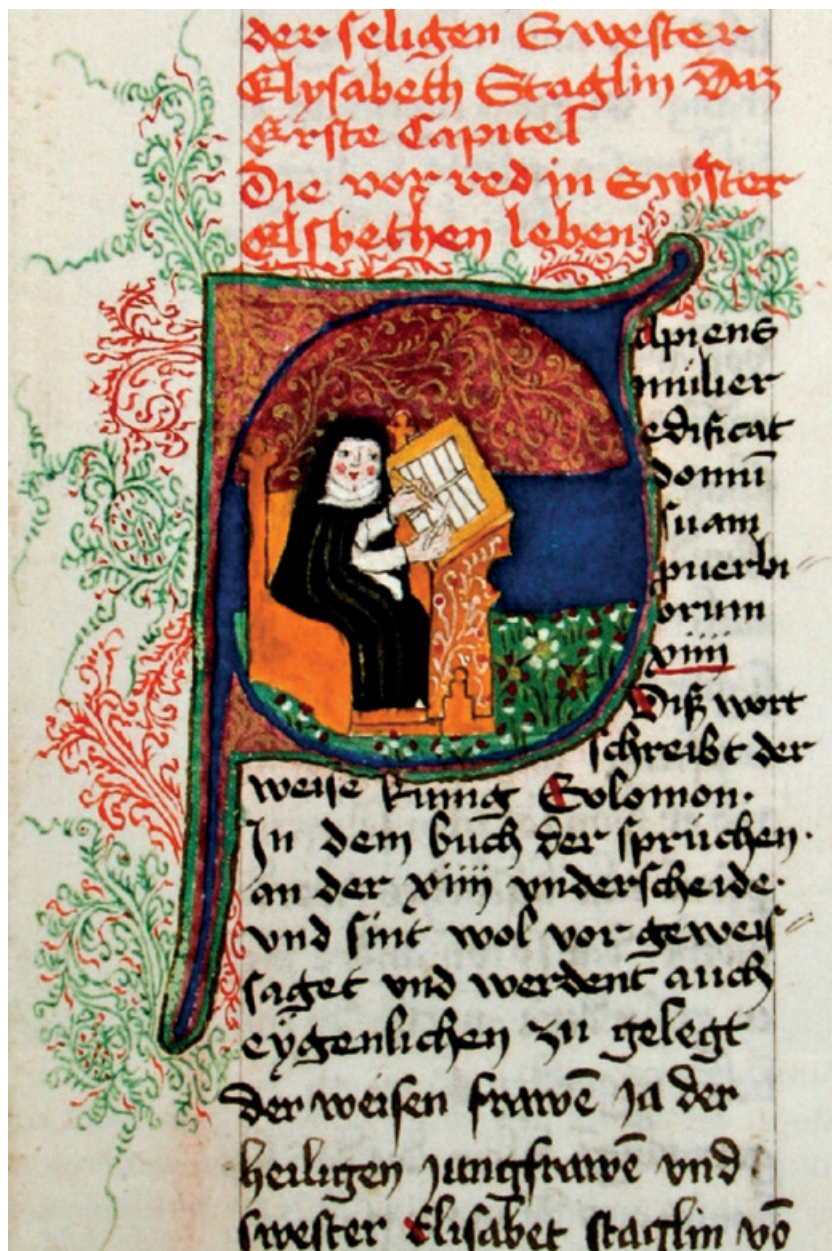 der seligen Swester
Elysabeth Staglin Daz
Erste Capitel
Die vor red in Swester
Elsbethen leben
Sapiens
mulier
edificat
domū
suam
puerbi
orum
xiiii
Diß wort
schreibt der
weise kunig Solomon.
In dem buch der sprüchen.
an der xiiii vnderscheide.
vnd sint wol vor geweis
saget vnd werdent auch
eÿgenlichen zu gelegt
der weisen frawē ja der
heiligen jungfrawē vnd
swester Elisabet staglin vō